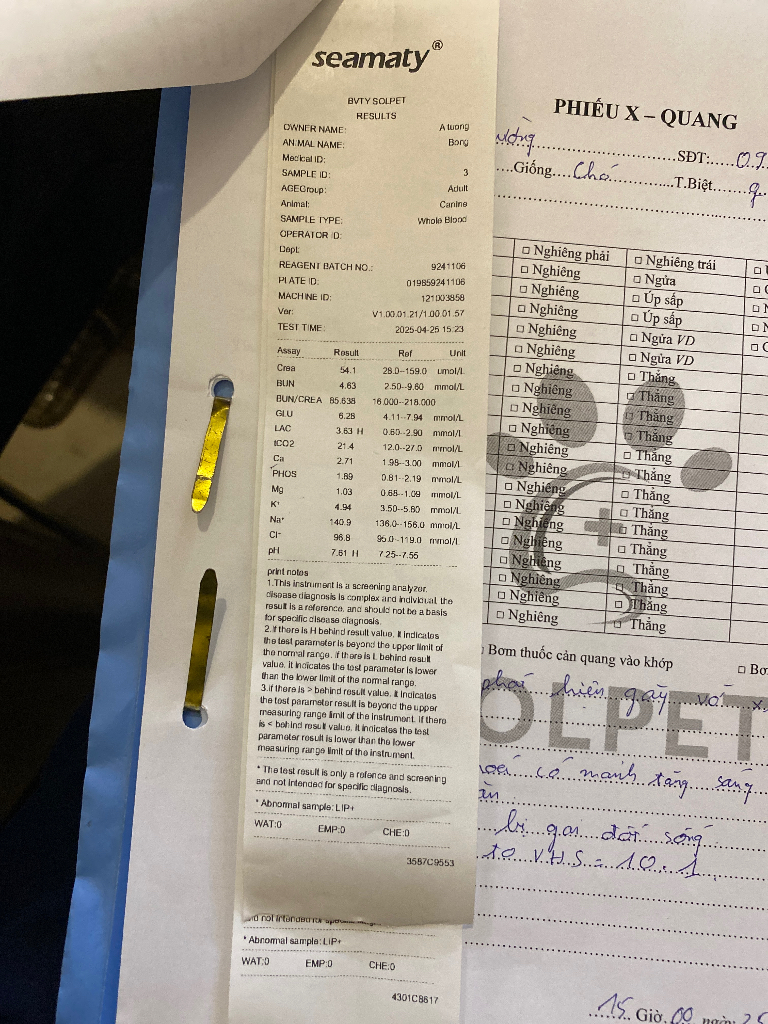 seamaty®
BVTY SOLPET
RESULTS
OWNER NAME: A tuong
ANIMAL NAME: Bong
Medical ID:
SAMPLE ID: 3
AGEGroup: Adult
Animal: Canine
SAMPLE TYPE: Whole Blood
OPERATOR ID:
Dept:
REAGENT BATCH NO.: 9241106
PLATE ID: 019859241106
MACHINE ID: 121003858
Ver: V1.00.01.21/1.00.01.57
TEST TIME: 2025-04-25 15:23
Assay Result Ref Unit
Crea 54.1 28.0--159.0 umol/L
BUN 4.63 2.50--9.60 mmol/L
BUN/CREA 85.638 16.000--218.000
GLU 6.28 4.11--7.94 mmol/L
LAC 3.63 H 0.60--2.90 mmol/L
tCO2 21.4 12.0--27.0 mmol/L
Ca 2.71 1.98--3.00 mmol/L
PHOS 1.89 0.81--2.19 mmol/L
Mg 1.03 0.68--1.09 mmol/L
K⁺ 4.94 3.50--5.80 mmol/L
Na⁺ 140.9 136.0--156.0 mmol/L
Cl⁻ 96.8 95.0--119.0 mmol/L
pH 7.61 H 7.25--7.55
print notes
1.This instrument is a screening analyzer,
disease diagnosis is complex and individual, the
result is a reference, and should not be a basis
for specific disease diagnosis.
2.if there is H behind result value, it indicates
the test parameter is beyond the upper limit of
the normal range. if there is L behind result
value, it indicates the test parameter is lower
than the lower limit of the normal range.
3.if there is > behind result value, it indicates
the test parameter result is beyond the upper
measuring range limit of the instrument. if there
is < behind result value, it indicates the test
parameter result is lower than the lower
measuring range limit of the instrument.
* The test result is only a refence and screening
and not intended for specific diagnosis.
* Abnormal sample: LIP+
WAT:0 EMP:0 CHE:0
3587C9553
* Abnormal sample: LIP+
WAT:0 EMP:0 CHE:0
4301C8617
PHIẾU X – QUANG
SĐT: 09
Giống Chó T.Biệt
□ Nghiêng phải □ Nghiêng trái
□ Nghiêng □ Ngửa
□ Nghiêng □ Úp sấp
□ Nghiêng □ Úp sấp
□ Nghiêng □ Ngửa VD
□ Nghiêng □ Ngửa VD
□ Nghiêng □ Thẳng
□ Nghiêng □ Thẳng
□ Nghiêng □ Thẳng
□ Nghiêng □ Thẳng
□ Nghiêng □ Thẳng
□ Nghiêng □ Thẳng
□ Nghiêng □ Thẳng
□ Nghiêng □ Thẳng
□ Nghiêng □ Thẳng
□ Nghiêng □ Thẳng
□ Nghiêng □ Thẳng
□ Nghiêng □ Thẳng
□ Nghiêng □ Thẳng
□ Nghiêng □ Thẳng
Bơm thuốc cản quang vào khớp
OLPET
hiện gãy
có mảnh tăng sáng
bị gai đốt sống
to VHS = 10.1
15 Giờ 00 ngày 25